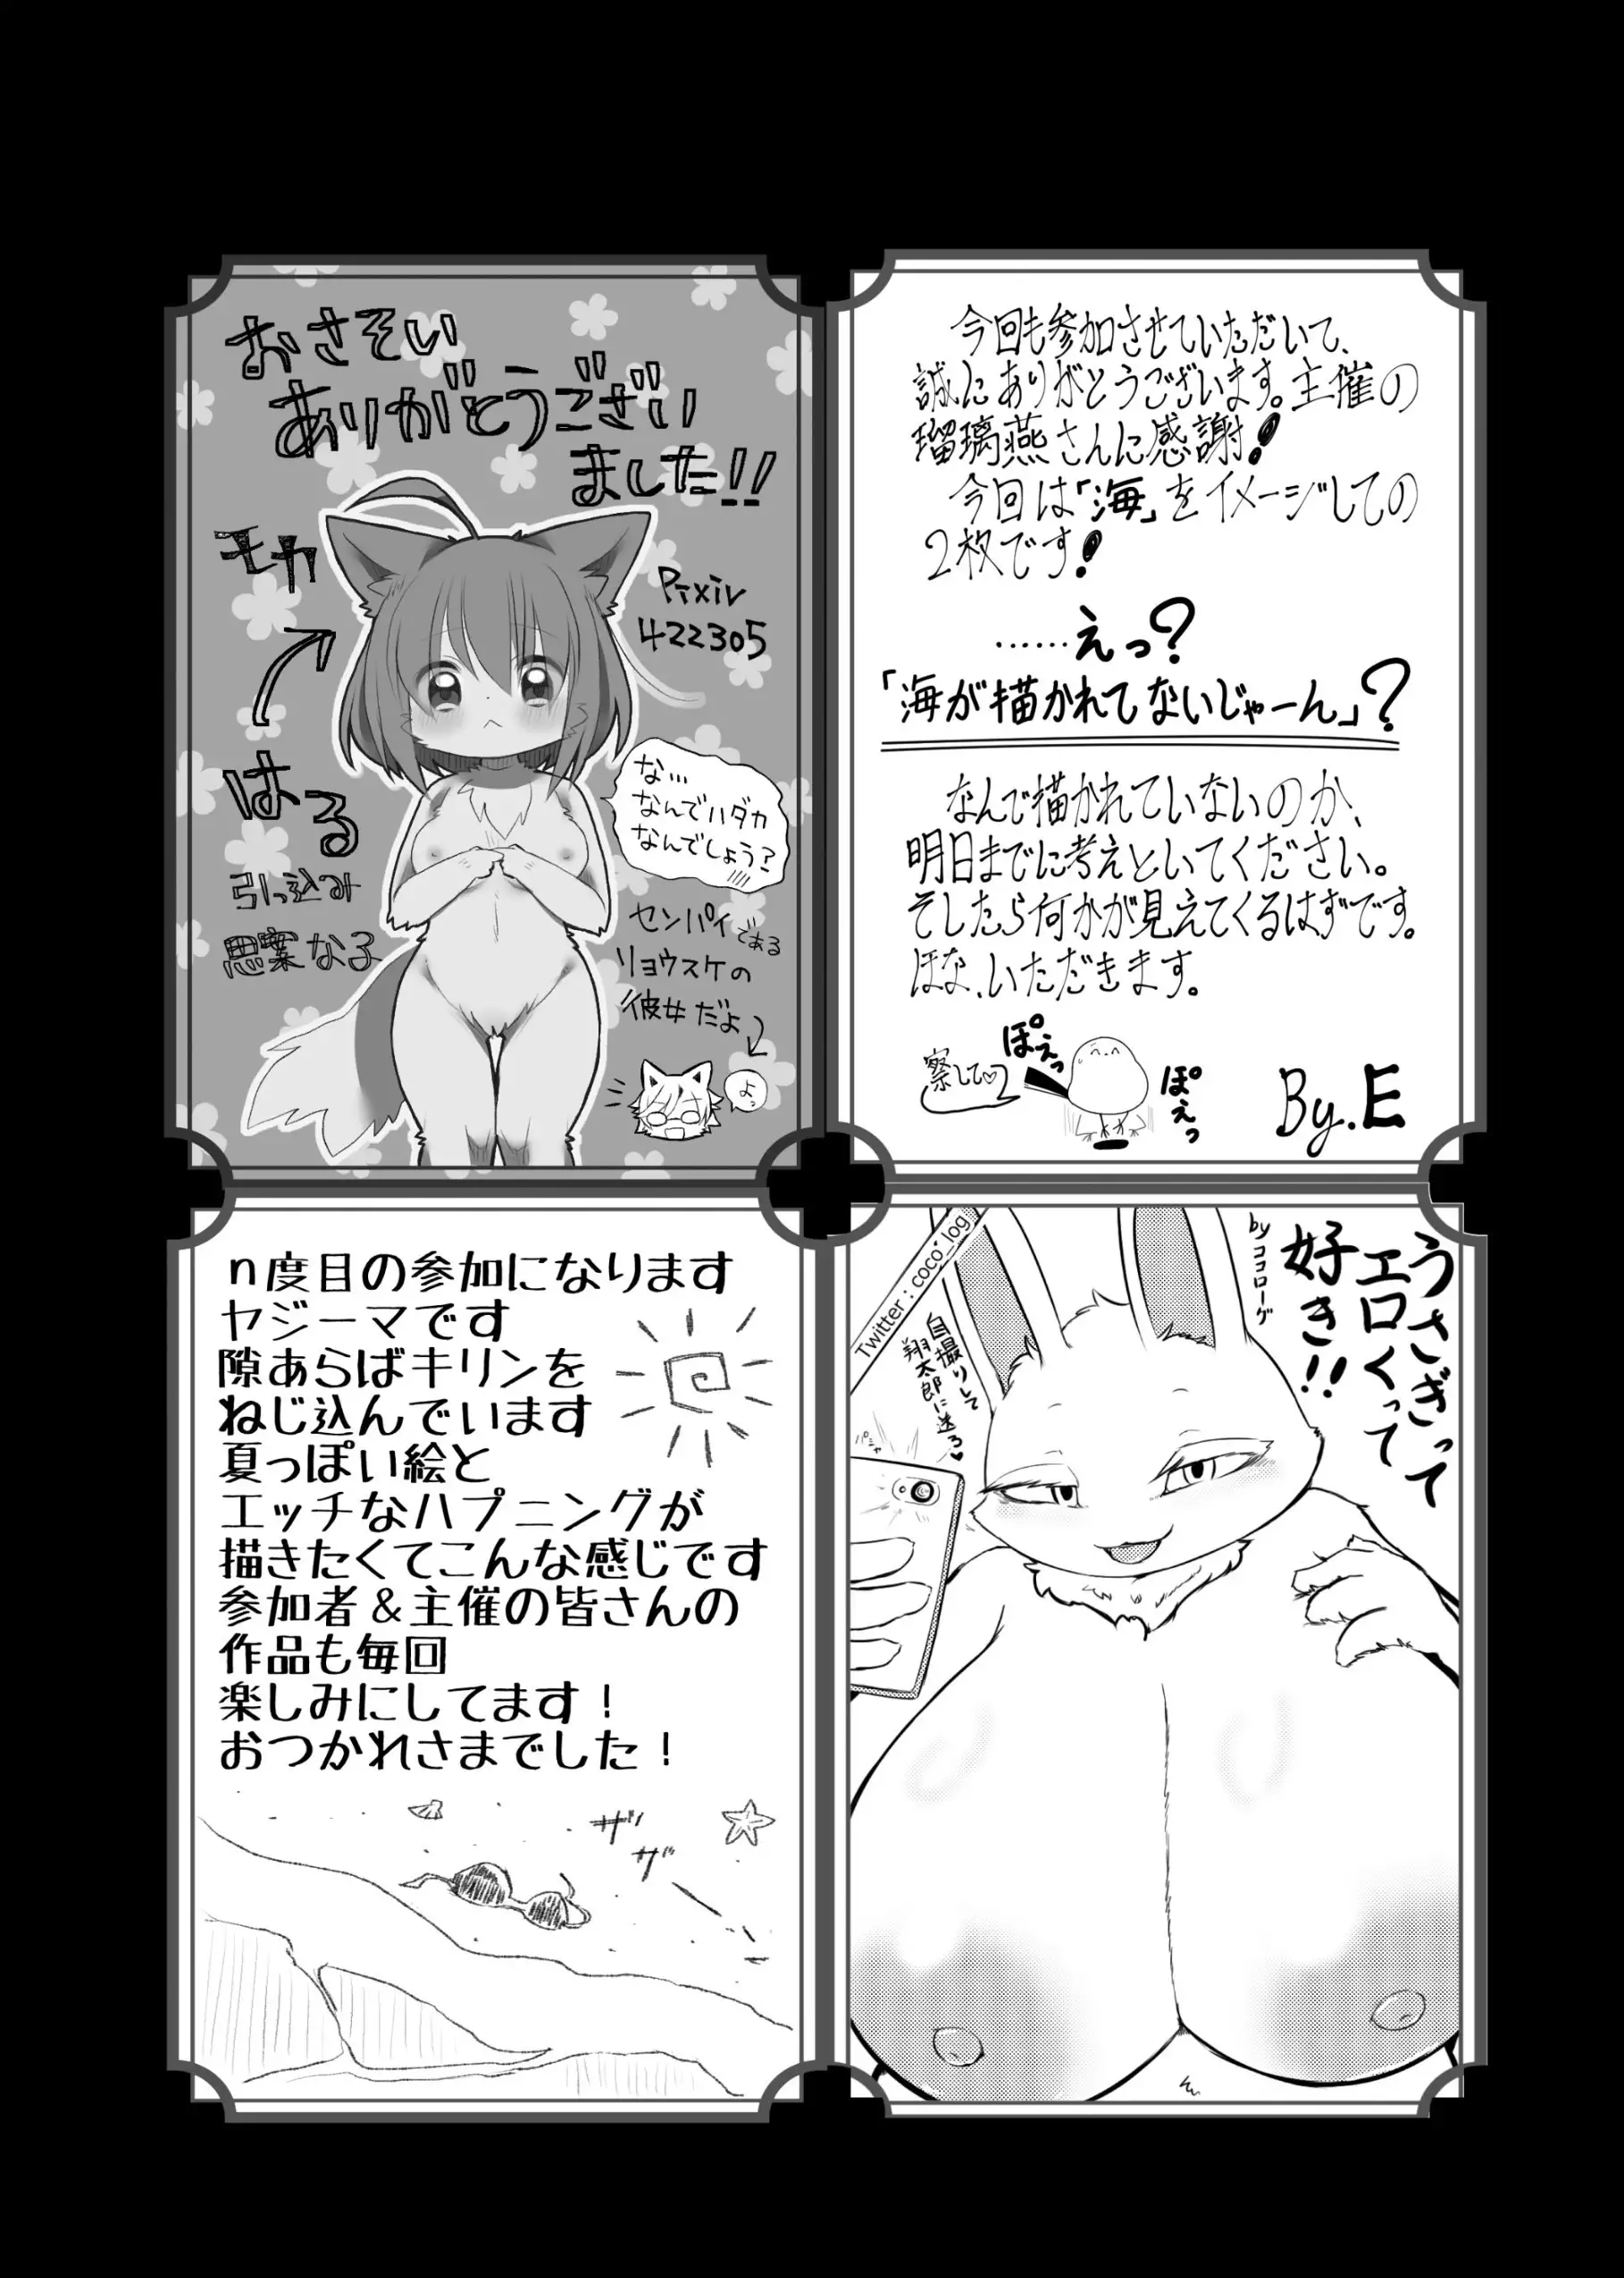 今回も参加させていただいて、
誠にありがとうございます。主催の
瑠璃燕さんに感謝!
今回は「海」をイメージしての
2枚です!
……えっ?
「海が描かれてないじゃーん」?
なんで描かれていないのか、
明日までに考えといてください。
そしたら何かが見えてくるはずです。
ほな、いただきます。
察して♡
ぽえっ
ぽえっ
By.E
おさそい
ありがとうございい
ました!!
モカ
はる
Pixiv
422305
な…
なんでハダカ
なんでしょう?
引っ込み
思案な子
センパイである
リョウスケの
彼女だよ
よっ
うさぎって
エロくって
好き!!
byココローゲ
Twitter:coco_log
自撮りして
翔太郎に送ろ♡
パシャ
n度目の参加になります
ヤジーマです
隙あらばキリンを
ねじ込んでいます
夏っぽい絵と
エッチなハプニングが
描きたくてこんな感じです
参加者&主催の皆さんの
作品も毎回
楽しみにしてます!
おつかれさまでした!
ザザ